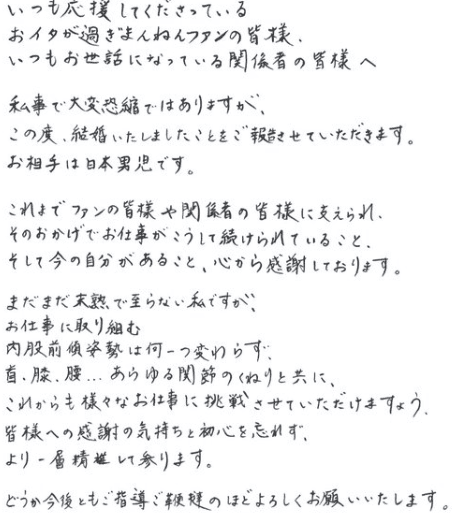 いつも応援してくださっている
おイタが過ぎまんねんファンの皆様、
いつもお世話になっている関係者の皆様へ
私事で大変恐縮ではありますが、
この度、結婚いたしましたことをご報告させていただきます。
お相手は日本男児です。
これまでファンの皆様や関係者の皆様に支えられ、
そのおかげでお仕事がこうして続けられていること、
そして今の自分があること、心から感謝しております。
まだまだ未熟で至らない私ですが、
お仕事に取り組む
内股前傾姿勢は何一つ変わらず、
首、膝、腰…あらゆる関節のくねりと共に、
これからも様々なお仕事に挑戦させていただけますよう、
皆様への感謝の気持ちと初心を忘れず、
より一層精進して参ります。
どうか今後ともご指導ご鞭撻のほどよろしくお願いいたします。